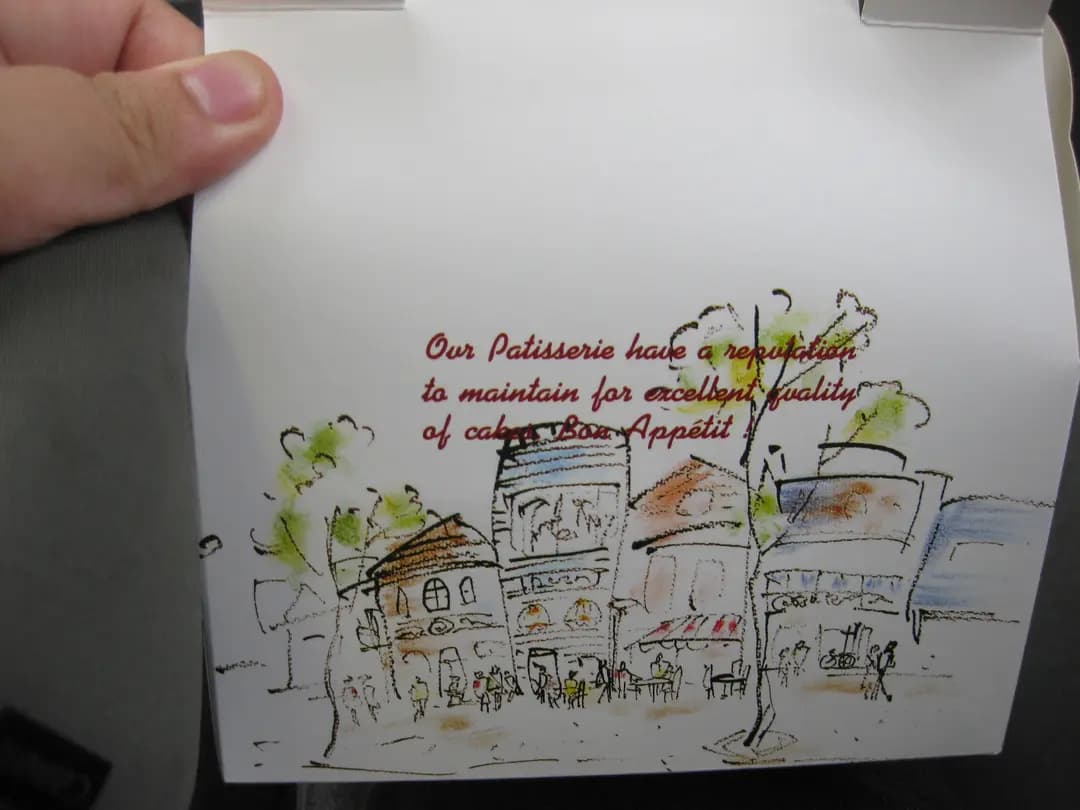 Our Patisserie have a reputation
to maintain for excellent quality
of cakes. Bon Appétit !